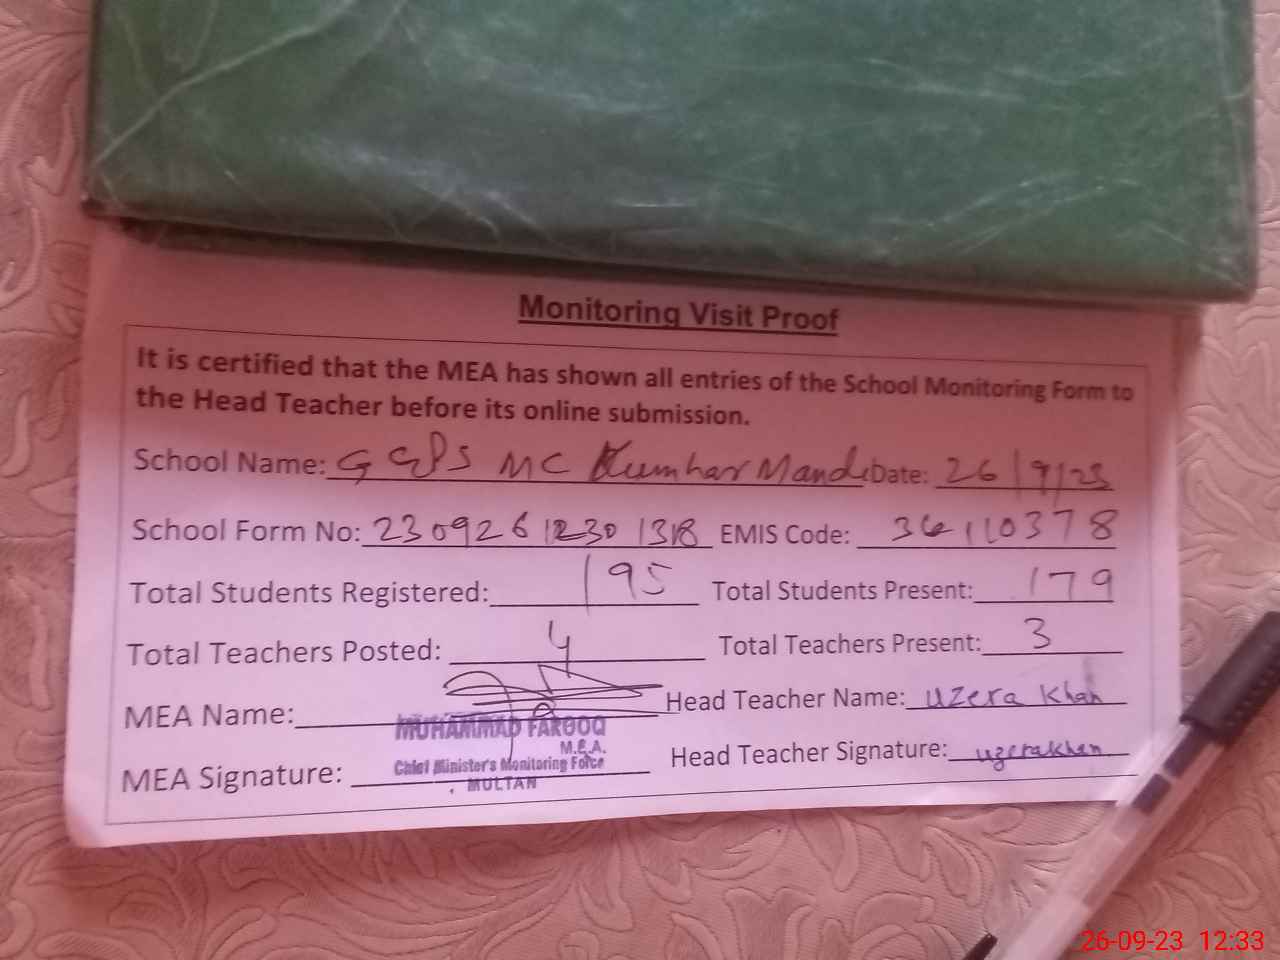 Monitoring Visit Proof
It is certified that the MEA has shown all entries of the School Monitoring Form to
the Head Teacher before its online submission.
School Name: GGPS MC Kumhar Mandi Date: 26/9/23
School Form No: 230926 1230 1318 EMIS Code: 36110378
Total Students Registered: 195 Total Students Present: 179
Total Teachers Posted: 4 Total Teachers Present: 3
MEA Name: Head Teacher Name: Uzera Khan
MUHAMMAD FAROOQ
M.E.A.
Chief Minister's Monitoring Force
MULTAN
MEA Signature: Head Teacher Signature: uzerakhan
26-09-23 12:33